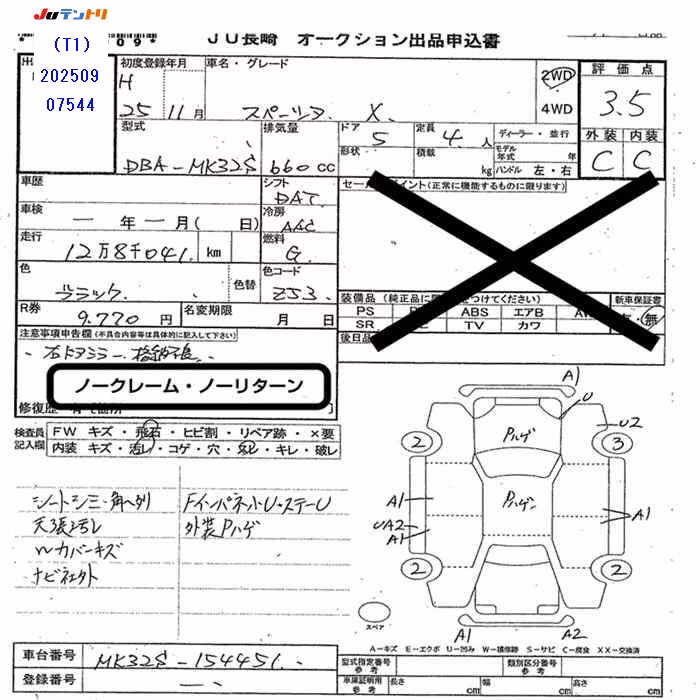 JUテントリ
(T1)
202509
07544
09*
JU長崎 オークション出品申込書
初度登録年月
車名・グレード
H
25 11月
スペーシア X
2WD
4WD
評価点
3.5
外装 内装
C C
型式
DBA-MK32S
排気量
660cc
ドア
5
定員
4 人
ディーラー・並行
形状
積載
kg
モデル年式
年
ハンドル 左・右
車歴
シフト
DAT
セールスポイント(正常に機能するものに限ります)
車検
ー 年 ー 月( 日)
冷房
AAC
走行
12万8千041 km
燃料
G
色
ブラック
色替
色コード
ZJ3
R券
9.770円
名変期限
月 日
装備品(純正品に
つけてください)
新車保証書
PS
ABS エアB
AW
有・無
SR
TV カワ
後日品
注意事項申告欄(不具合内容等は具体的に記入して下さい)
右ドアミラー
ノークレーム・ノーリターン
修復歴
検査員記入欄
FW キズ・飛石・ヒビ割・リペア跡・×要
内装 キズ・汚レ・コゲ・穴・欠レ・キレ・破レ
シートシミ・角ヘリ
天張汚レ
Wカバーキズ
ナビ社外
FインパネホU・ステーU
外装Pハゲ
A1
U
U2
2
3
Pハゲ
Pハゲ
A1
UA2
A1
A1
2
2
A1
A2
スペア
A-キズ E-エクボ U-凹み W-補修跡 S-サビ C-腐食 XX-交換済
車台番号
MK32S-154451
登録番号
ー
型式指定番号
参考
類別区分番号
参考
車庫証明用
参考
長さ
cm
幅
cm
高さ
cm